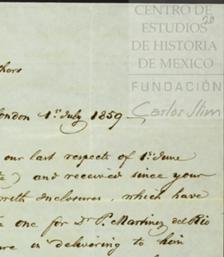 CENTRO DE
ESTUDIOS
DE HISTORIA
DE MÉXICO
FUNDACIÓN
Carlos Slim
28
thers
London 1st July 1859
our last respects of 1st June
te) and received since your
with enclosures, which have
e one for Dr P. Martinez del Rio
are in delivering to him